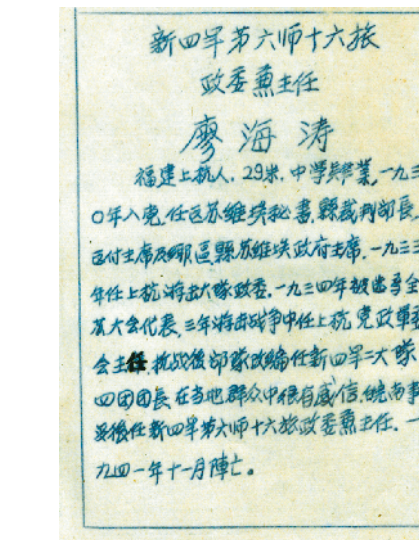 新四军第六师十六旅
政委兼主任
廖海涛
福建上杭人，29岁，中学毕業，一九三
〇年入党，任区苏維埃秘書，縣裁判部長，
区付主席及縣苏維埃政府主席，一九三三
年任上杭游击大隊政委，一九三四年被出全
大会代表，三年游击战争中任上杭党政軍委
会主任，抗战後部隊改編任新四军二大隊
四团团長，在当地群众中很有威信，皖南事
後任新四军第六师十六旅政委兼主任，一
九四一年十一月陣亡。